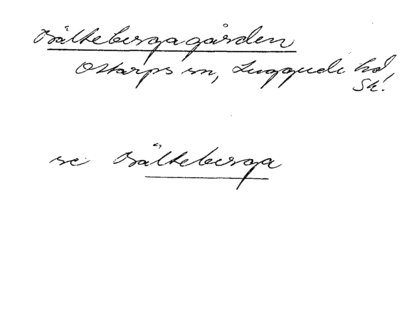 Bältebergagården
Ottarps sn, Luggude hd
Sk!
se Bälteberga